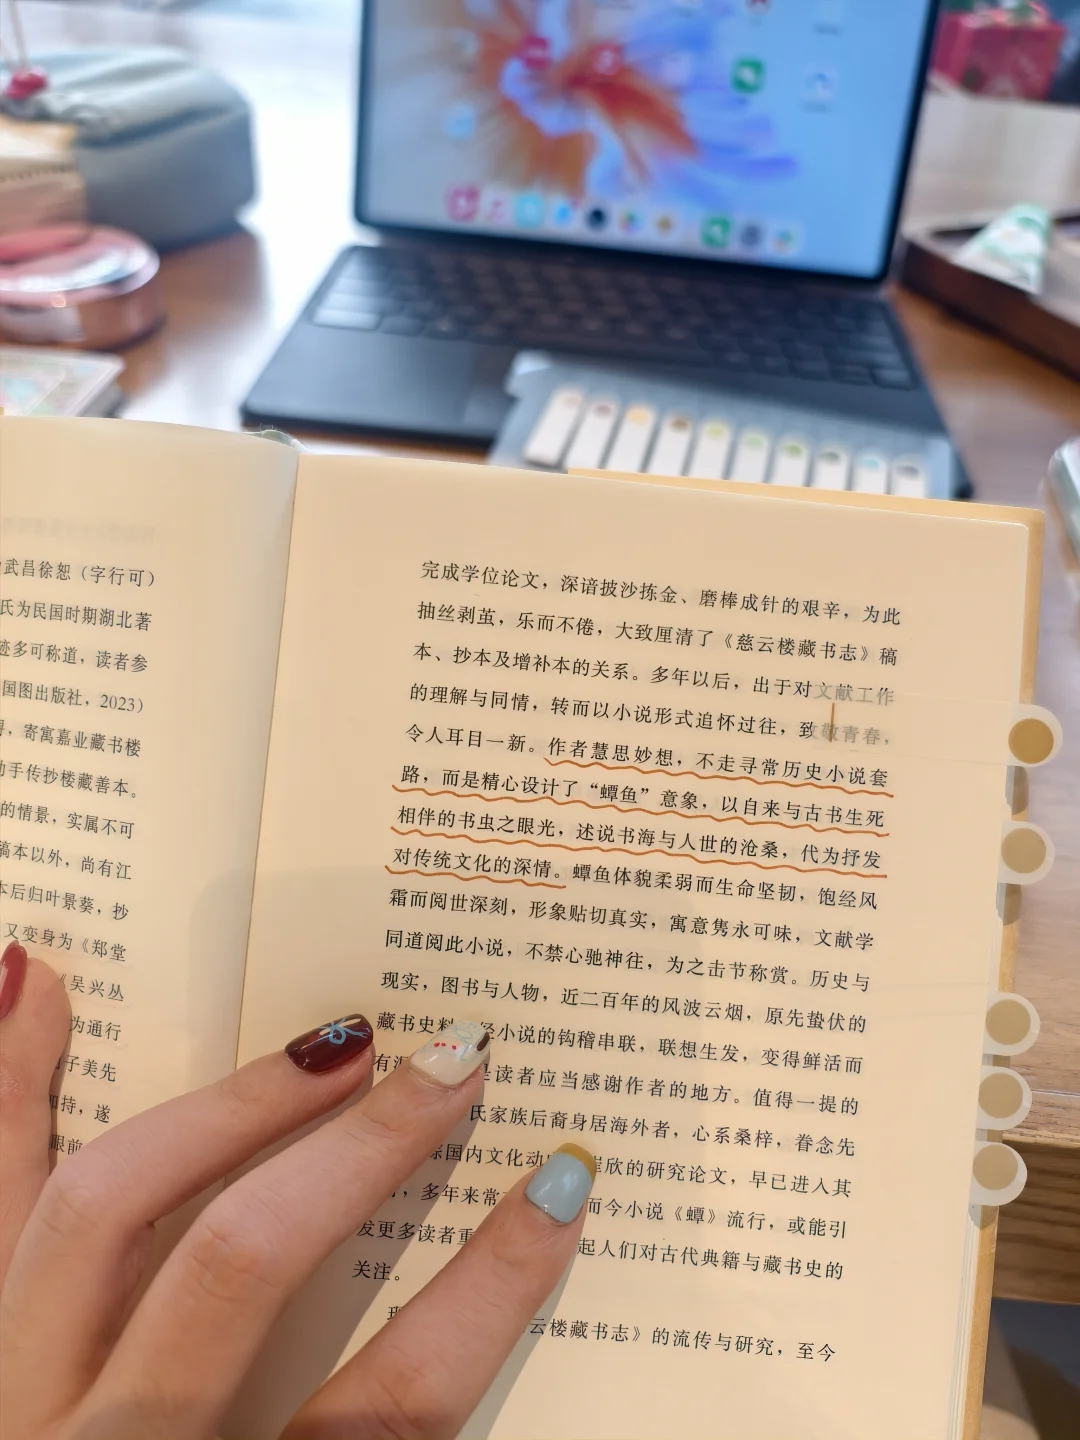 武昌徐恕（字行可）
氏为民国时期湖北著
迹多可称道，读者参
国图出版社，2023）
寄寓嘉业藏书楼
动手传抄楼藏善本。
的情景，实属不可
稿本以外，尚有江
本后归叶景葵，抄
又变身为《郑堂
《吴兴丛
为通行
子美先
加持，遂
眼前
完成学位论文，深谙披沙拣金、磨棒成针的艰辛，为此
抽丝剥茧，乐而不倦，大致厘清了《慈云楼藏书志》稿
本、抄本及增补本的关系。多年以后，出于对文献工作
的理解与同情，转而以小说形式追怀过往，致敬青春，
令人耳目一新。作者慧思妙想，不走寻常历史小说套
路，而是精心设计了“蟫鱼”意象，以自来与古书生死
相伴的书虫之眼光，述说书海与人世的沧桑，代为抒发
对传统文化的深情。蟫鱼体貌柔弱而生命坚韧，饱经风
霜而阅世深刻，形象贴切真实，寓意隽永可味，文献学
同道阅此小说，不禁心驰神往，为之击节称赏。历史与
现实，图书与人物，近二百年的风波云烟，原先蛰伏的
藏书史料 经小说的钩稽串联，联想生发，变得鲜活而
有 是读者应当感谢作者的地方。值得一提的
氏家族后裔身居海外者，心系桑梓，眷念先
踪国内文化动 崔欣的研究论文，早已进入其
，多年来常 而今小说《蟫》流行，或能引
发更多读者重 起人们对古代典籍与藏书史的
关注。
云楼藏书志》的流传与研究，至今